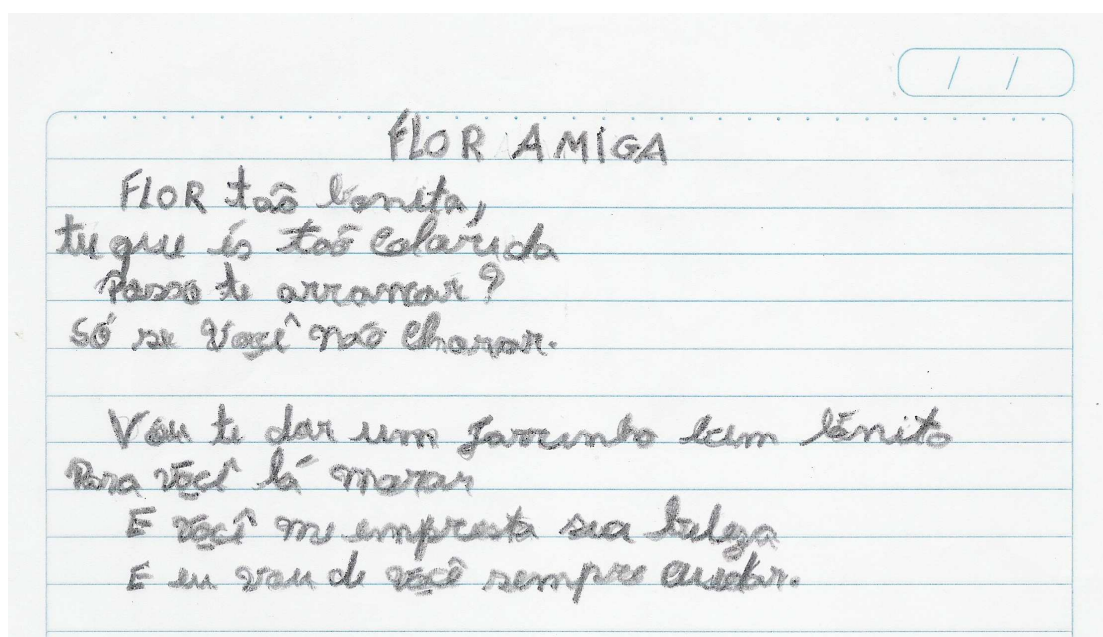 FLOR AMIGA
FLOR taõ bonita,
tu que és taõ colorida
Posso te arrancar?
Só se você não chorar.
Vou te dar um Jarrinho bem bonito
Para você lá morar
E você me empresta sua beleza
E eu vou de você sempre cuidar.